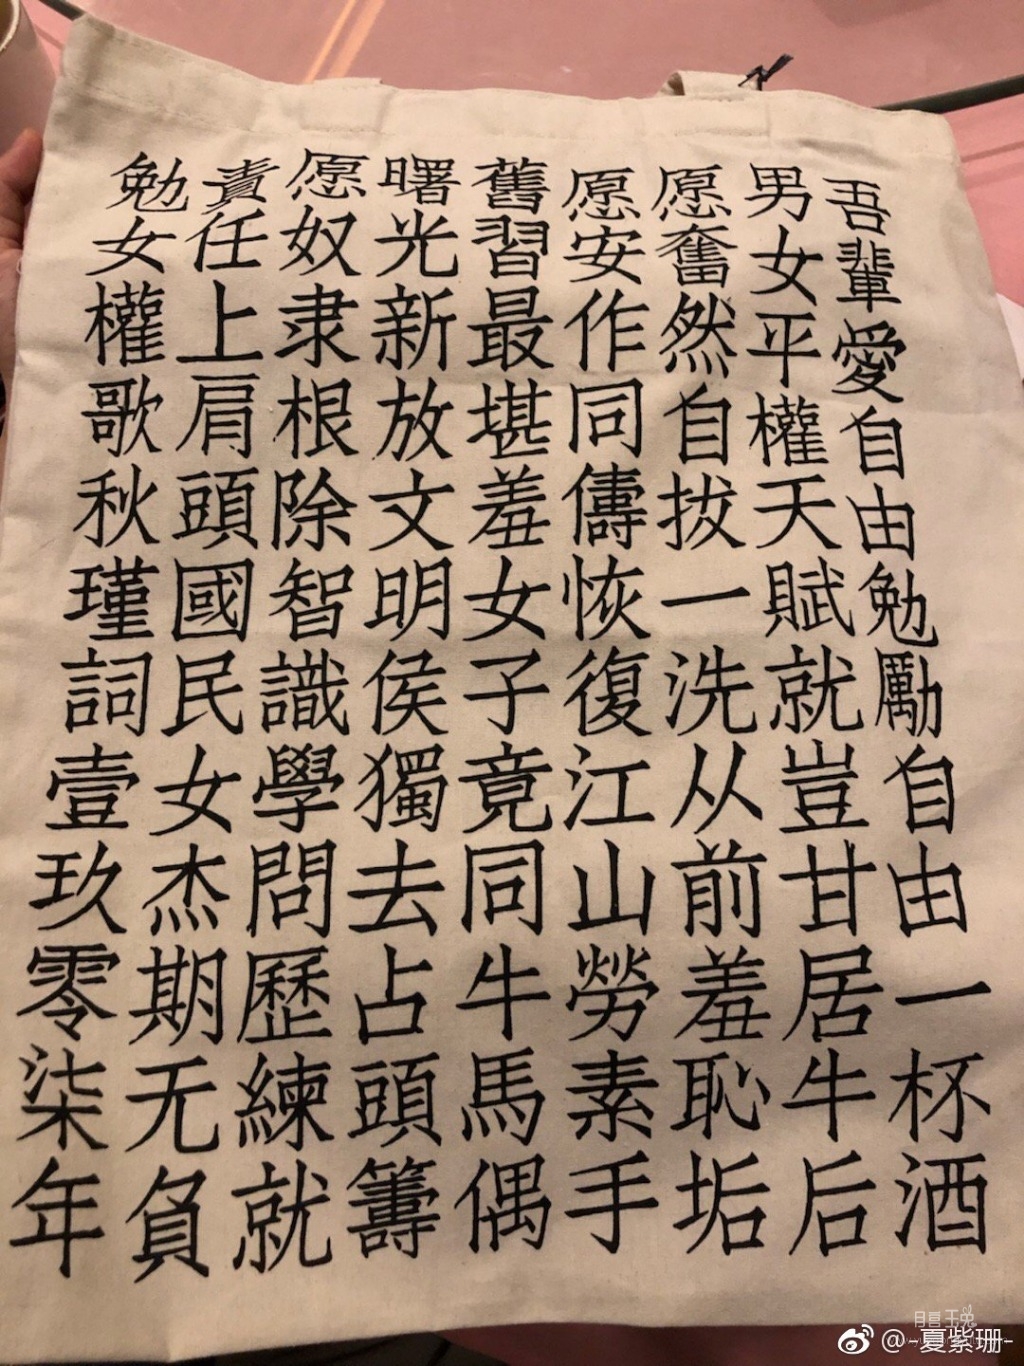 吾輩愛自由勉勵自由一杯酒
男女平權天賦就豈甘居牛后
愿奮然自拔一洗从前羞恥垢
愿安作同儔恢復江山勞素手
舊習最堪羞女子竟同牛馬偶
曙光新放文明侯獨去占頭籌
愿奴隶根除智識學問歷練就
責任上肩頭國民女杰期无負
勉女權歌秋瑾詞壹玖零柒年
@-夏紫珊-